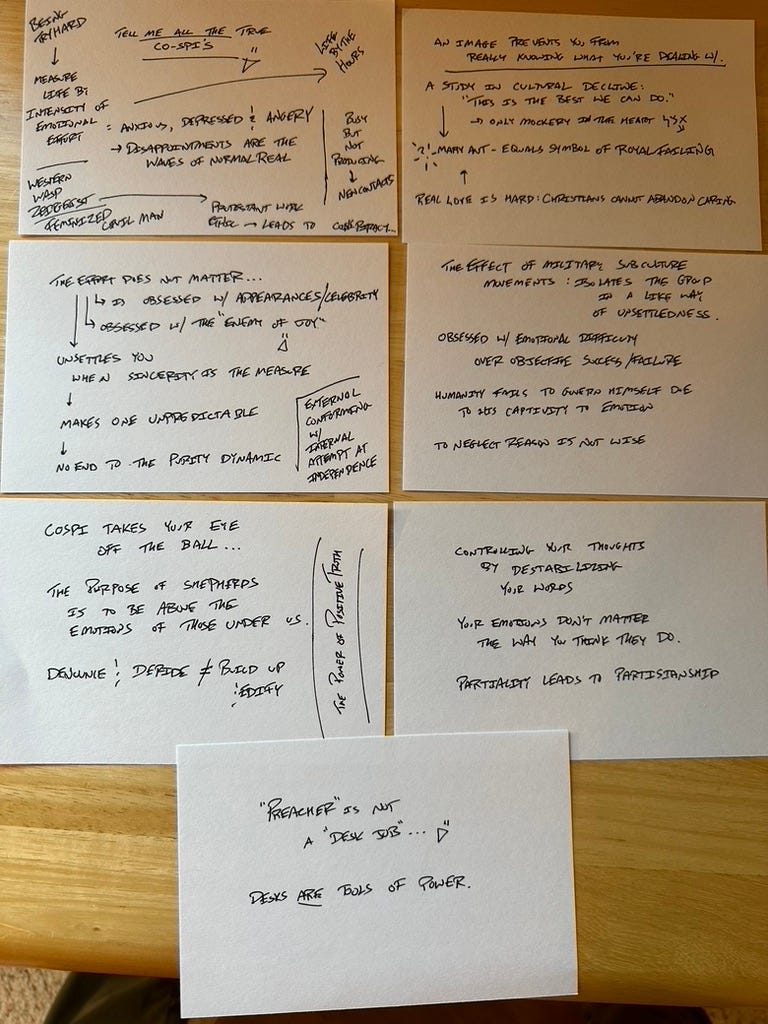 BEING
TRYHARD
MEASURE
LIFE BY
INTENSITY OF
EMOTIONAL
EFFORT
TELL ME ALL THE TRUE
CO-SPI'S
LIFE
BY THE
HOURS
= ANXIOUS, DEPRESSED & ANGERY
→ DISAPPOINTMENTS ARE THE
WAVES OF NORMAL REAL
BUSY
BUT
NOT
PRODUCING
NEW CONTACTS
WESTERN
WASP
ZEITGEIST
FEMINIZED CIVIL MAN
PROTESTANT WORK
ETHIC → LEADS TO CONSPIRACY...
AN IMAGE PREVENTS YOU FROM
REALLY KNOWING WHAT YOU'RE DEALING W/.
A STUDY IN CULTURAL DECLINE:
"THIS IS THE BEST WE CAN DO."
→ ONLY MOCKERY IN THE HEART
MARY ANT - EQUALS SYMBOL OF ROYAL FAILING
REAL LOVE IS HARD: CHRISTIANS CANNOT ABANDON CARING
THE EFFORT DOES NOT MATTER...
↳ IS OBSESSED W/ APPEARANCES/CELEBRITY
↳ OBSESSED W/ THE "ENEMY OF JOY"
UNSETTLES YOU
WHEN SINCERITY IS THE MEASURE
MAKES ONE UNPREDICTABLE
NO END TO THE PURITY DYNAMIC
EXTERNAL
CONFORMING
W/
INTERNAL
ATTEMPT AT
INDEPENDENCE
THE EFFECT OF MILITARY SUBCULTURE
MOVEMENTS: ISOLATES THE GROUP
IN A LIKE WAY
OF UNSETTLEDNESS.
OBSESSED W/ EMOTIONAL DIFFICULTY
OVER OBJECTIVE SUCCESS/FAILURE
HUMANITY FAILS TO GOVERN HIMSELF DUE
TO HIS CAPTIVITY TO EMOTION
TO NEGLECT REASON IS NOT WISE
COSPI TAKES YOUR EYE
OFF THE BALL...
THE PURPOSE OF SHEPHERDS
IS TO BE ABOVE THE
EMOTIONS OF THOSE UNDER US.
DENOUNCE & DERIDE ≠ BUILD UP
& EDIFY
THE POWER OF POSITIVE TRUTH
CONTROLLING YOUR THOUGHTS
BY DESTABILIZING
YOUR WORDS
YOUR EMOTIONS DON'T MATTER
THE WAY YOU THINK THEY DO.
PARTIALITY LEADS TO PARTISIANSHIP
"PREACHER" IS NOT
A "DESK JOB"...
DESKS ARE TOOLS OF POWER.